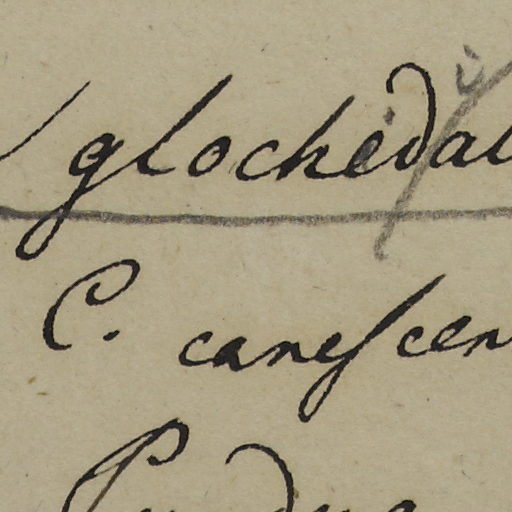 glochidat
C. canescen